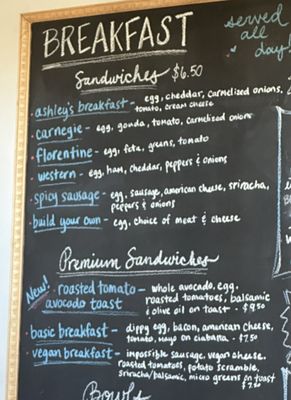 BREAKFAST
served
all
day!
Sandwiches $6.50
ashley's breakfast - egg, cheddar, carmelized onions,
tomato, cream cheese
carnegie - egg, gouda, tomato, carmelized onions
florentine - egg, feta, greens, tomato
western - egg, ham, cheddar, peppers & onions
spicy sausage - egg, sausage, american cheese, sriracha,
peppers & onions
build your own - egg, choice of meat & cheese
Premium Sandwiches
New! roasted tomato - whole avocado, egg,
avocado toast roasted tomatoes, balsamic
& olive oil on toast - $9.50
basic breakfast - dippy egg, bacon, american cheese,
tomato, mayo on ciabatta - $7.50
vegan breakfast - impossible sausage, vegan cheese,
roasted tomatoes, potato scramble,
sriracha/balsamic, micro greens on toast
Bowls